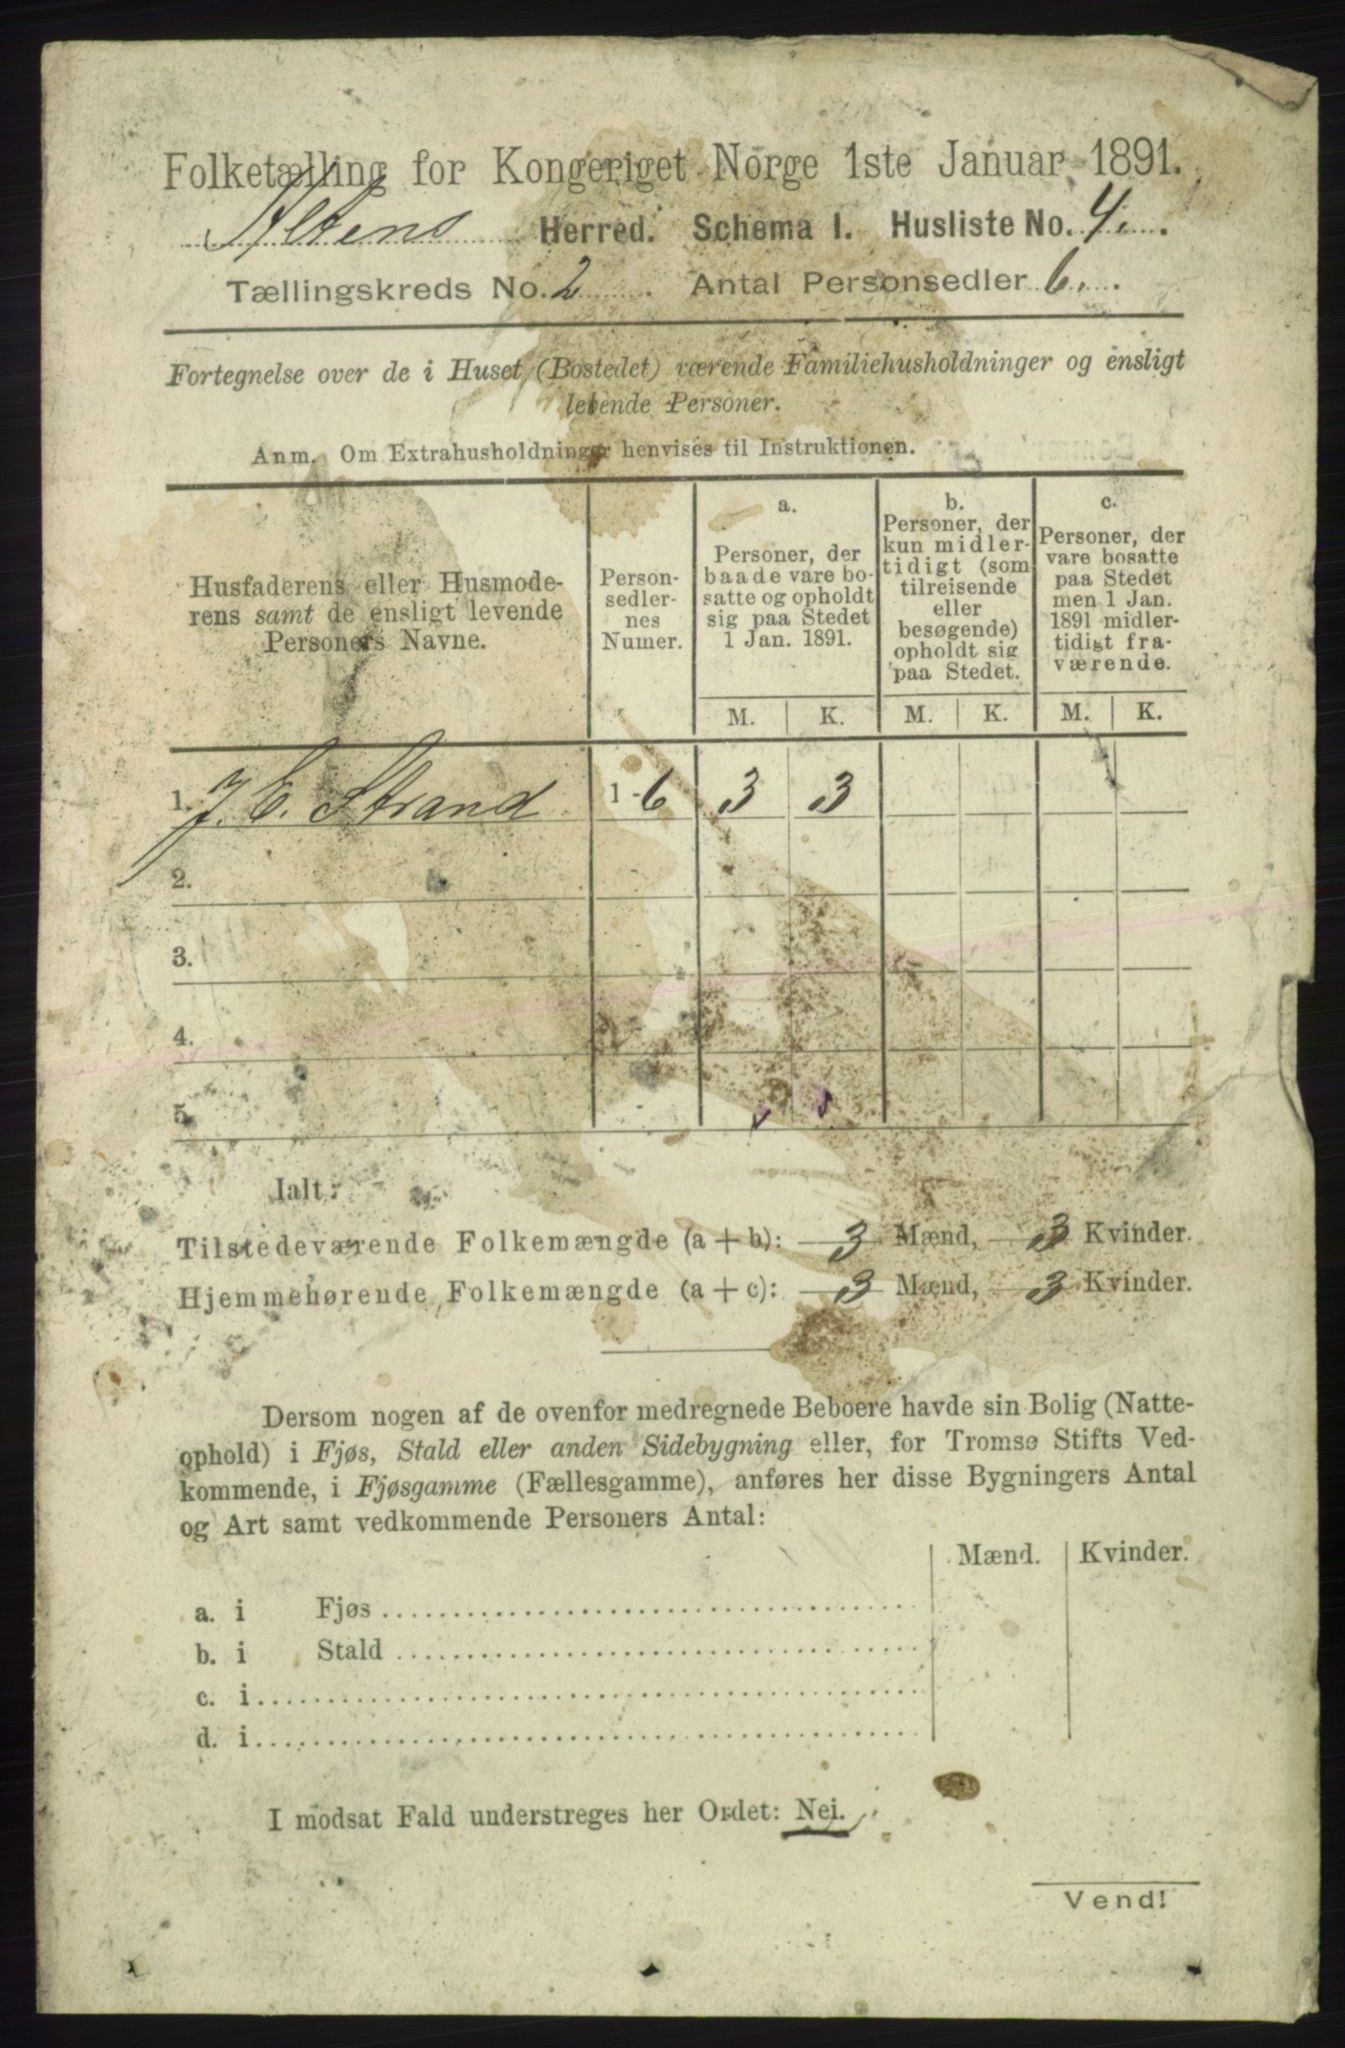 Folketælling for Kongeriget Norge 1ste Januar 1891.
Altens Herred. Schema I. Husliste No. 4.
Tællingskreds No. 2 . Antal Personsedler 6.
Fortegnelse over de i Huset (Bostedet) værende Familiehusholdninger og ensligt
levende Personer.
Anm. Om Extrahusholdninger henvises til Instruktionen.
Husfaderens eller Husmode-
rens samt de ensligt levende
Personers Navne.
Person-
sedler-
nes
Numer.
a.
Personer, der
baade vare bo-
satte og opholdt
sig paa Stedet
1 Jan. 1891.
b.
Personer, der
kun midler-
tidigt (som
tilreisende
eller
besøgende)
opholdt sig
paa Stedet.
c.
Personer, der
vare bosatte
paa Stedet
men 1 Jan.
1891 midler-
tidigt fra-
værende.
M. K. M. K. M. K.
1. J. E. Strand 1-6 3 3
2.
3.
4.
5.
Ialt:
Tilstedeværende Folkemængde (a + b): 3 Mænd, 3 Kvinder.
Hjemmehørende Folkemængde (a + c): 3 Mænd, 3 Kvinder.
Dersom nogen af de ovenfor medregnede Beboere havde sin Bolig (Natte-
ophold) i Fjøs, Stald eller anden Sidebygning eller, for Tromsø Stifts Ved-
kommende, i Fjøsgamme (Fællesgamme), anføres her disse Bygningers Antal
og Art samt vedkommende Personers Antal:
Mænd. Kvinder.
a. i Fjøs
b. i Stald
c. i
d. i
I modsat Fald understreges her Ordet: Nei.
Vend!